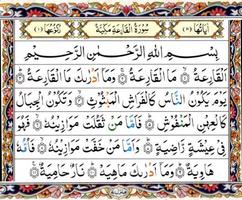 سُورَةُ الْقَارِعَةِ مَكِّيَّةٌ
بِسْمِ اللهِ الرَّحْمٰنِ الرَّحِيْمِ
اَلْقَارِعَةُ ۙ مَا الْقَارِعَةُ ۚ وَمَآ اَدْرٰىكَ مَا الْقَارِعَةُ ؕ
يَوْمَ يَكُوْنُ النَّاسُ كَالْفَرَاشِ الْمَبْثُوْثِ ۙ وَتَكُوْنُ الْجِبَالُ
كَالْعِهْنِ الْمَنْفُوْشِ ؕ فَاَمَّا مَنْ ثَقُلَتْ مَوَازِيْنُهٗ ۙ فَهُوَ
فِيْ عِيْشَةٍ رَّاضِيَةٍ ؕ وَاَمَّا مَنْ خَفَّتْ مَوَازِيْنُهٗ ۙ فَاُمُّهٗ
هَاوِيَةٌ ؕ وَمَآ اَدْرٰىكَ مَاهِيَهْ ؕ نَارٌ حَامِيَةٌ